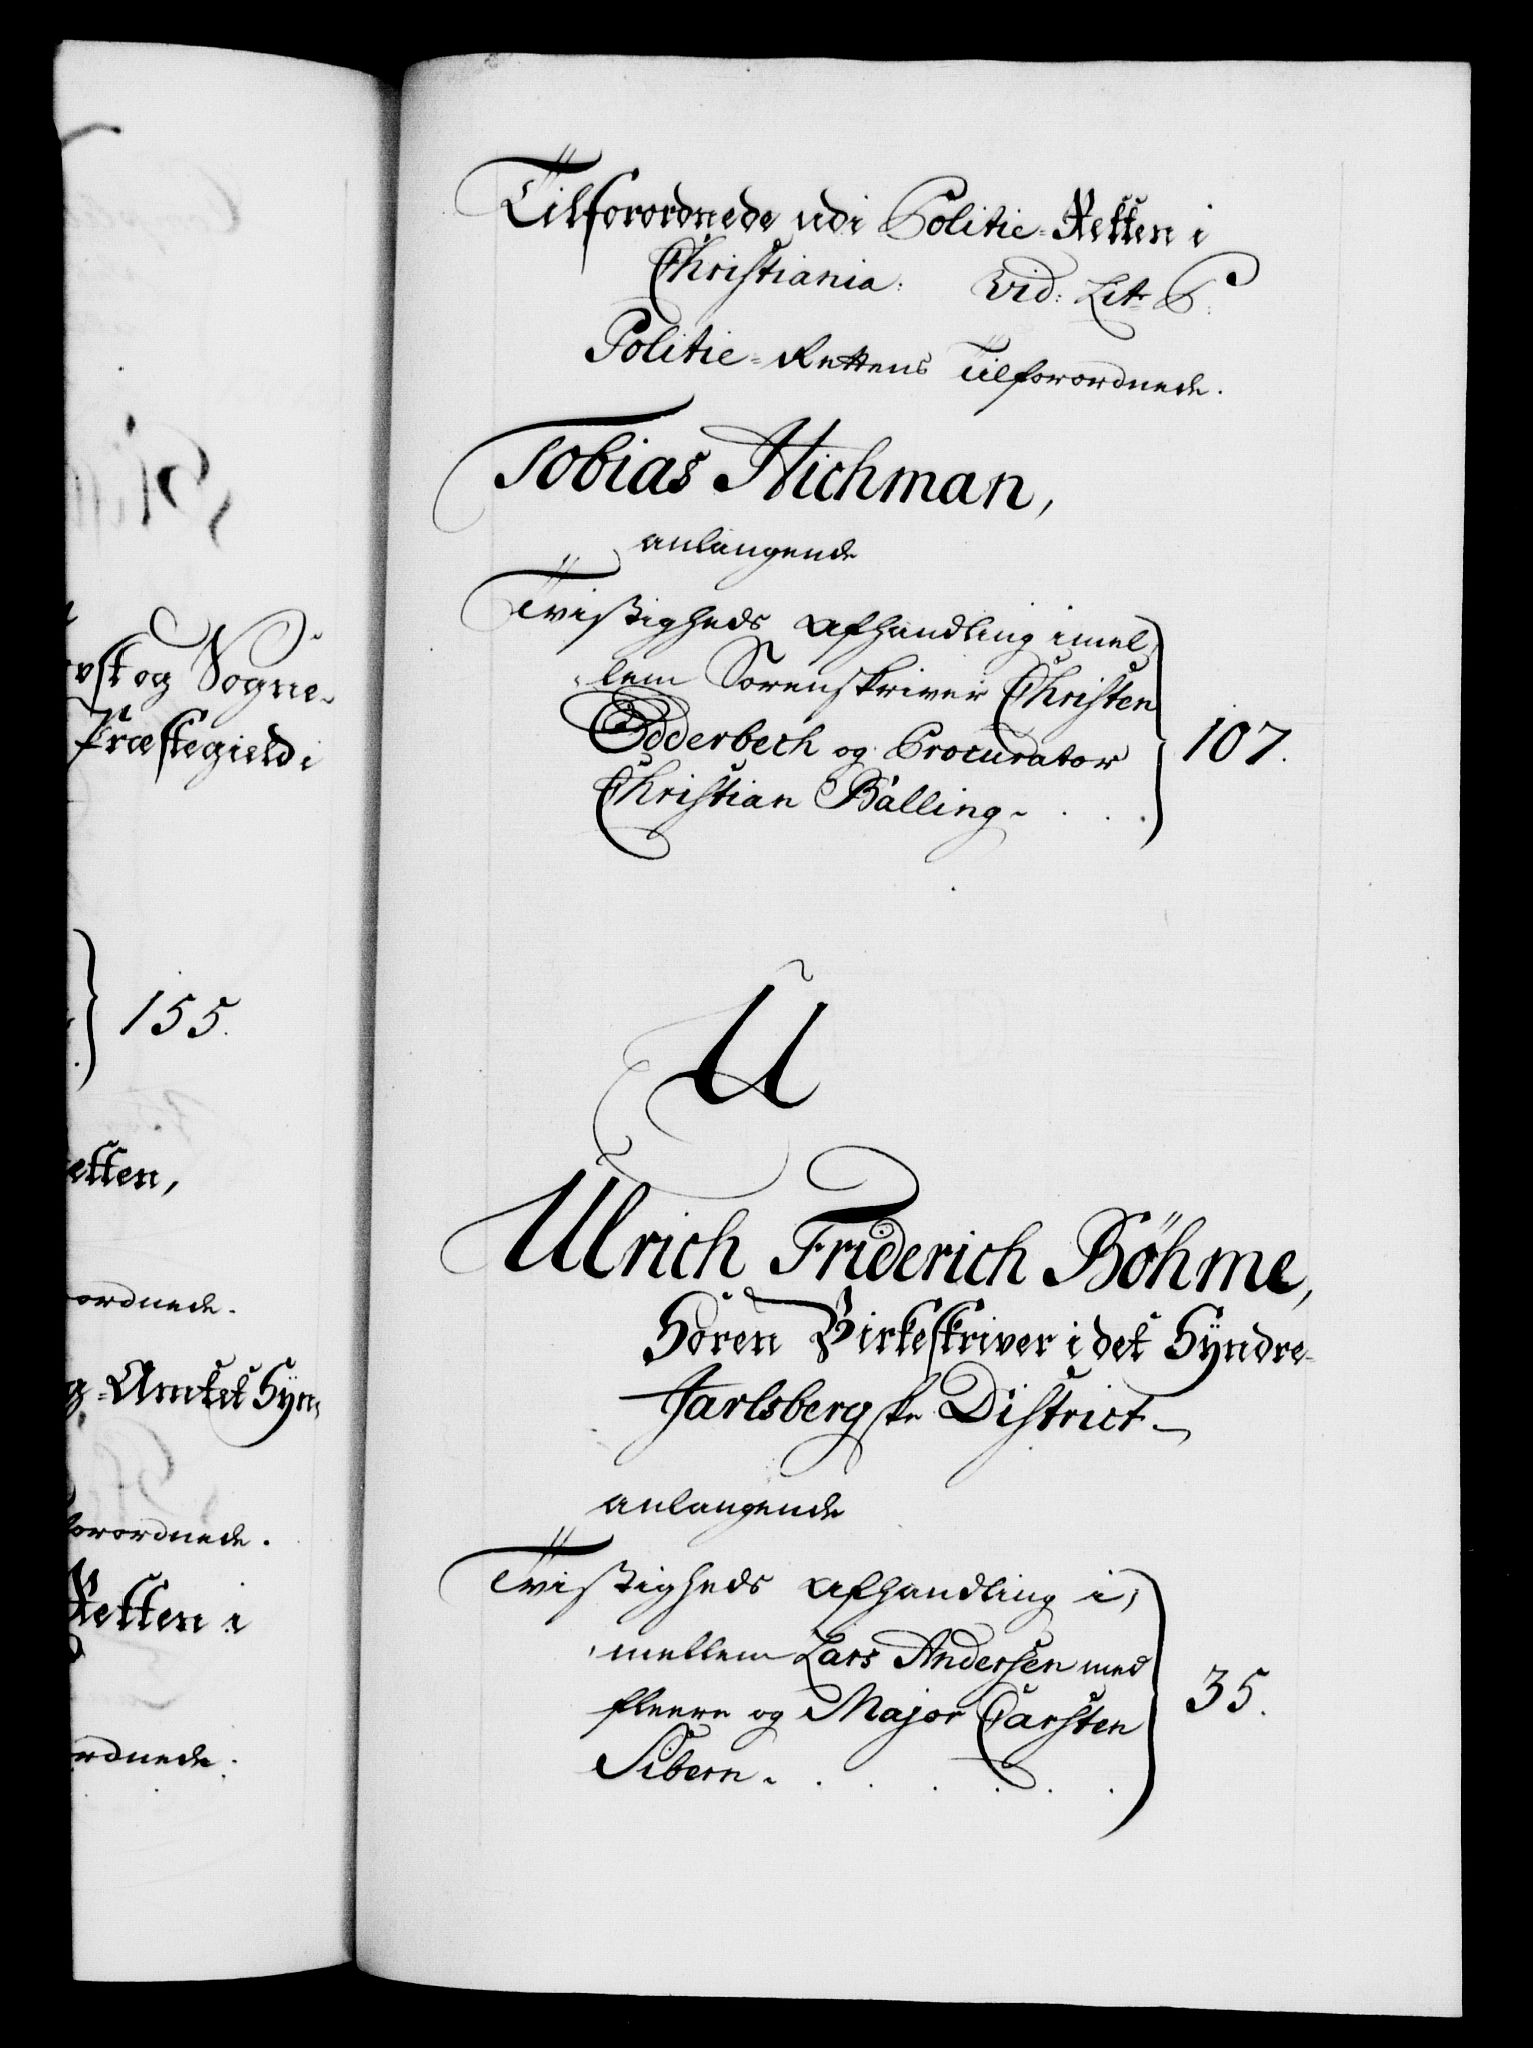 vst og Sogne-
Præstegield i
155.
etten,
ordnede.
g-Amtet Syn,
forordnede.
Retten i
rdnede.
Tilforordnede udi Politie-Retten i
Christiania: Vid: Lit: P:
Politie-Rettens Tilforordnede.
Tobias Wichman,
anlangende
Tvistigheds Afhandling imel,
lem Sorenskriver Christen
Odderbech og Procurator
Christian Balling. 107.
U
Ulrich Friderich Böhme,
Soren Birkeskriver i det Syndre-
Jarlsbergske District
anlangende
Tvistigheds Afhandling i,
mellem Lars Andersen med
fleere og Major Carsten
Sibern. 35.